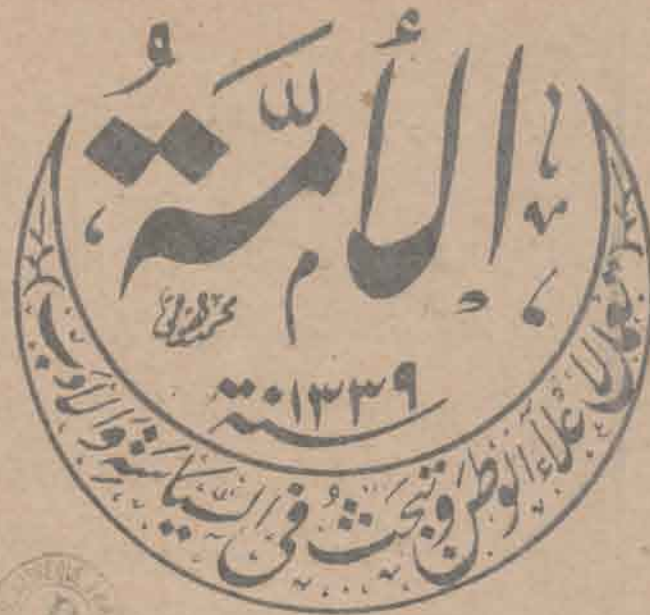 الأمَّةُ
سنة ١٣٣٩
تعمل لإعلاء الوطن وتبحثُ في السياسة والأدب